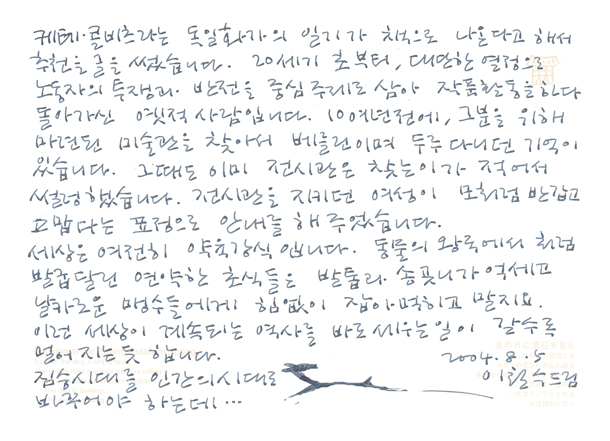 케테·콜비츠라는 독일화가의 일기가 책으로 나온다고 해서
추천의 글을 썼습니다. 20세기 초부터, 대단한 열정으로
노동자의 투쟁과 반전을 중심주제로 삼아 작품활동을 하다
돌아가신 옛적 사람입니다. 10여년전에, 그분을 위해
마련된 미술관을 찾아서 베를린이며 두루 다니던 기억이
있습니다. 그때도 이미 전시관은 찾는이가 적어서
썰렁했습니다. 전시관을 지키던 여성이 모처럼 반갑고
고맙다는 표정으로 안내를 해 주었습니다.
세상은 여전히 약육강식입니다. 동물의 왕국에서 처럼
발굽달린 연약한 초식들은 발톱과 송곳니가 억세고
날카로운 맹수들에게 힘없이 잡아먹히고 말지요.
이런 세상이 계속되는 역사를 바로세우는 일이 갈수록
멀어지는듯 합니다.
짐승시대를 인간의시대로
바꾸어야 하는데…
2004.8.5
이철수드림